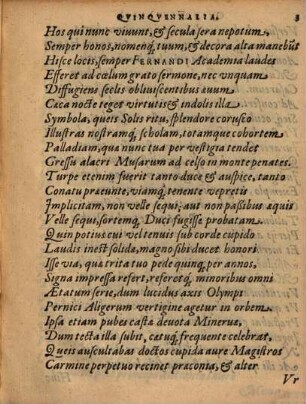 QVINQVENNALIA. 3
Hos qui nunc viuunt, & secula sera nepotum,
Semper honos, nomenq́; tuum, & decora alta manebũt
Hisce locis, semper FERNANDI Academia laudes
Efferet ad cœlum grato sermone, nec vnquam
Diffugiens seclis obliuiscentibus æuum
Cæca nocte teget virtutis & indolis illa
Symbola, queis Solis ritu, splendore corusco
Illustras nostramq́; scholam, totamque cohortem
Palladiam, qua nunc tua per vestigia tendet
Gressu alacri Musarum ad celso in monte penates.
Turpe etenim fuerit tanto duce & auspice, tanto
Conatu præeunte, viamq́; tenente vepretis
Implicitam, non velle sequi: aut non passibus æquis
Velle sequi, sortemq́; Duci fugisse probatam.
Quin potius cui vel tenuis sub corde cupido
Laudis inest solidæ, magno sibi ducet honori
Isse via, qua trita tuo pede quinq; per annos,
Signa impressa refert, referetq́; minoribus omni
Ætatum serie, dum lucidus axis Olympi
Pernici Aligerum vertigine aget in orbem.
Ipsa etiam pubes castæ deuota Mineruæ,
Dum tecta illa subit, cætuq́; frequente celebrat,
Queis auscultabas doctos cupida aure Magistros
Carmine perpetuo recinet præconia, & alter
Vr